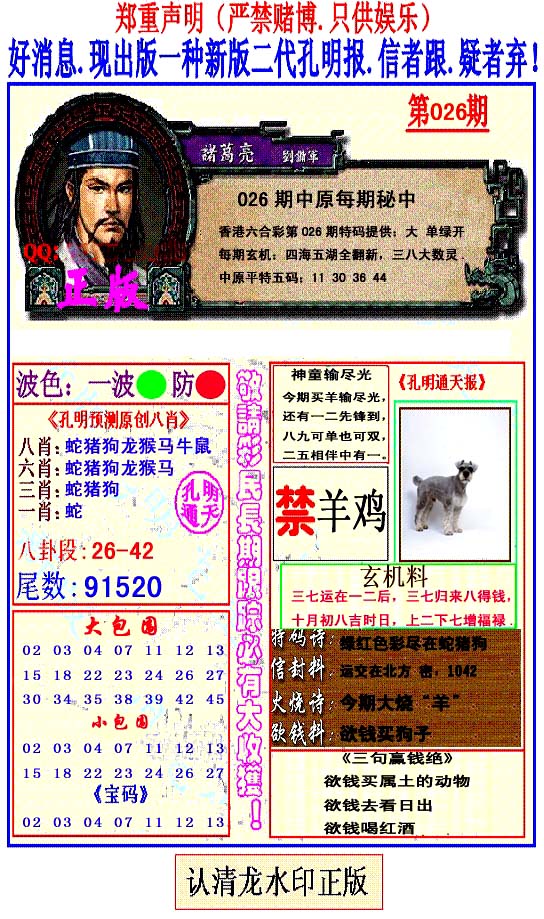 郑重声明（严禁赌博.只供娱乐）
好消息.现出版一种新版二代孔明报.信者跟.疑者弃!
第026期
諸葛亮 劉備軍
026 期中原每期秘中
香港六合彩第 026 期特码提供: 大 单绿开
每期玄机: 四海五湖全翻新, 三八大数灵.
中原平特五码: 11 30 36 44
QQ:
正版
波色: 一波 防
《孔明预测原创八肖》
八肖: 蛇猪狗龙猴马牛鼠
六肖: 蛇猪狗龙猴马
三肖: 蛇猪狗
一肖: 蛇
孔明通天
八卦段: 26-42
尾数: 91520
大包围
02 03 04 07 11 12 13
15 18 22 23 24 26 27
30 34 35 38 39 42 45
小包围
02 03 04 07 11 12 13
15 18 22 23 24 26 27
《宝码》
02 03 04 07 11 12 13
敬請彩民長期跟踪必有大收獲！
神童输尽光
今期买羊输尽光,
还有一二先锋到,
八九可单也可双,
二五相伴中有一。
《孔明通天报》
禁羊鸡
玄机料
三七运在一二后, 三七归来八得钱,
十月初八吉时日, 上二下七增福禄.
特码诗: 绿红色彩尽在蛇猪狗
信封料: 运交在北方 密, 1042
火烧诗: 今期大烧“羊”
欲钱料: 欲钱买狗子
《三句赢钱绝》
欲钱买属土的动物
欲钱去看日出
欲钱喝红酒
认清龙水印正版